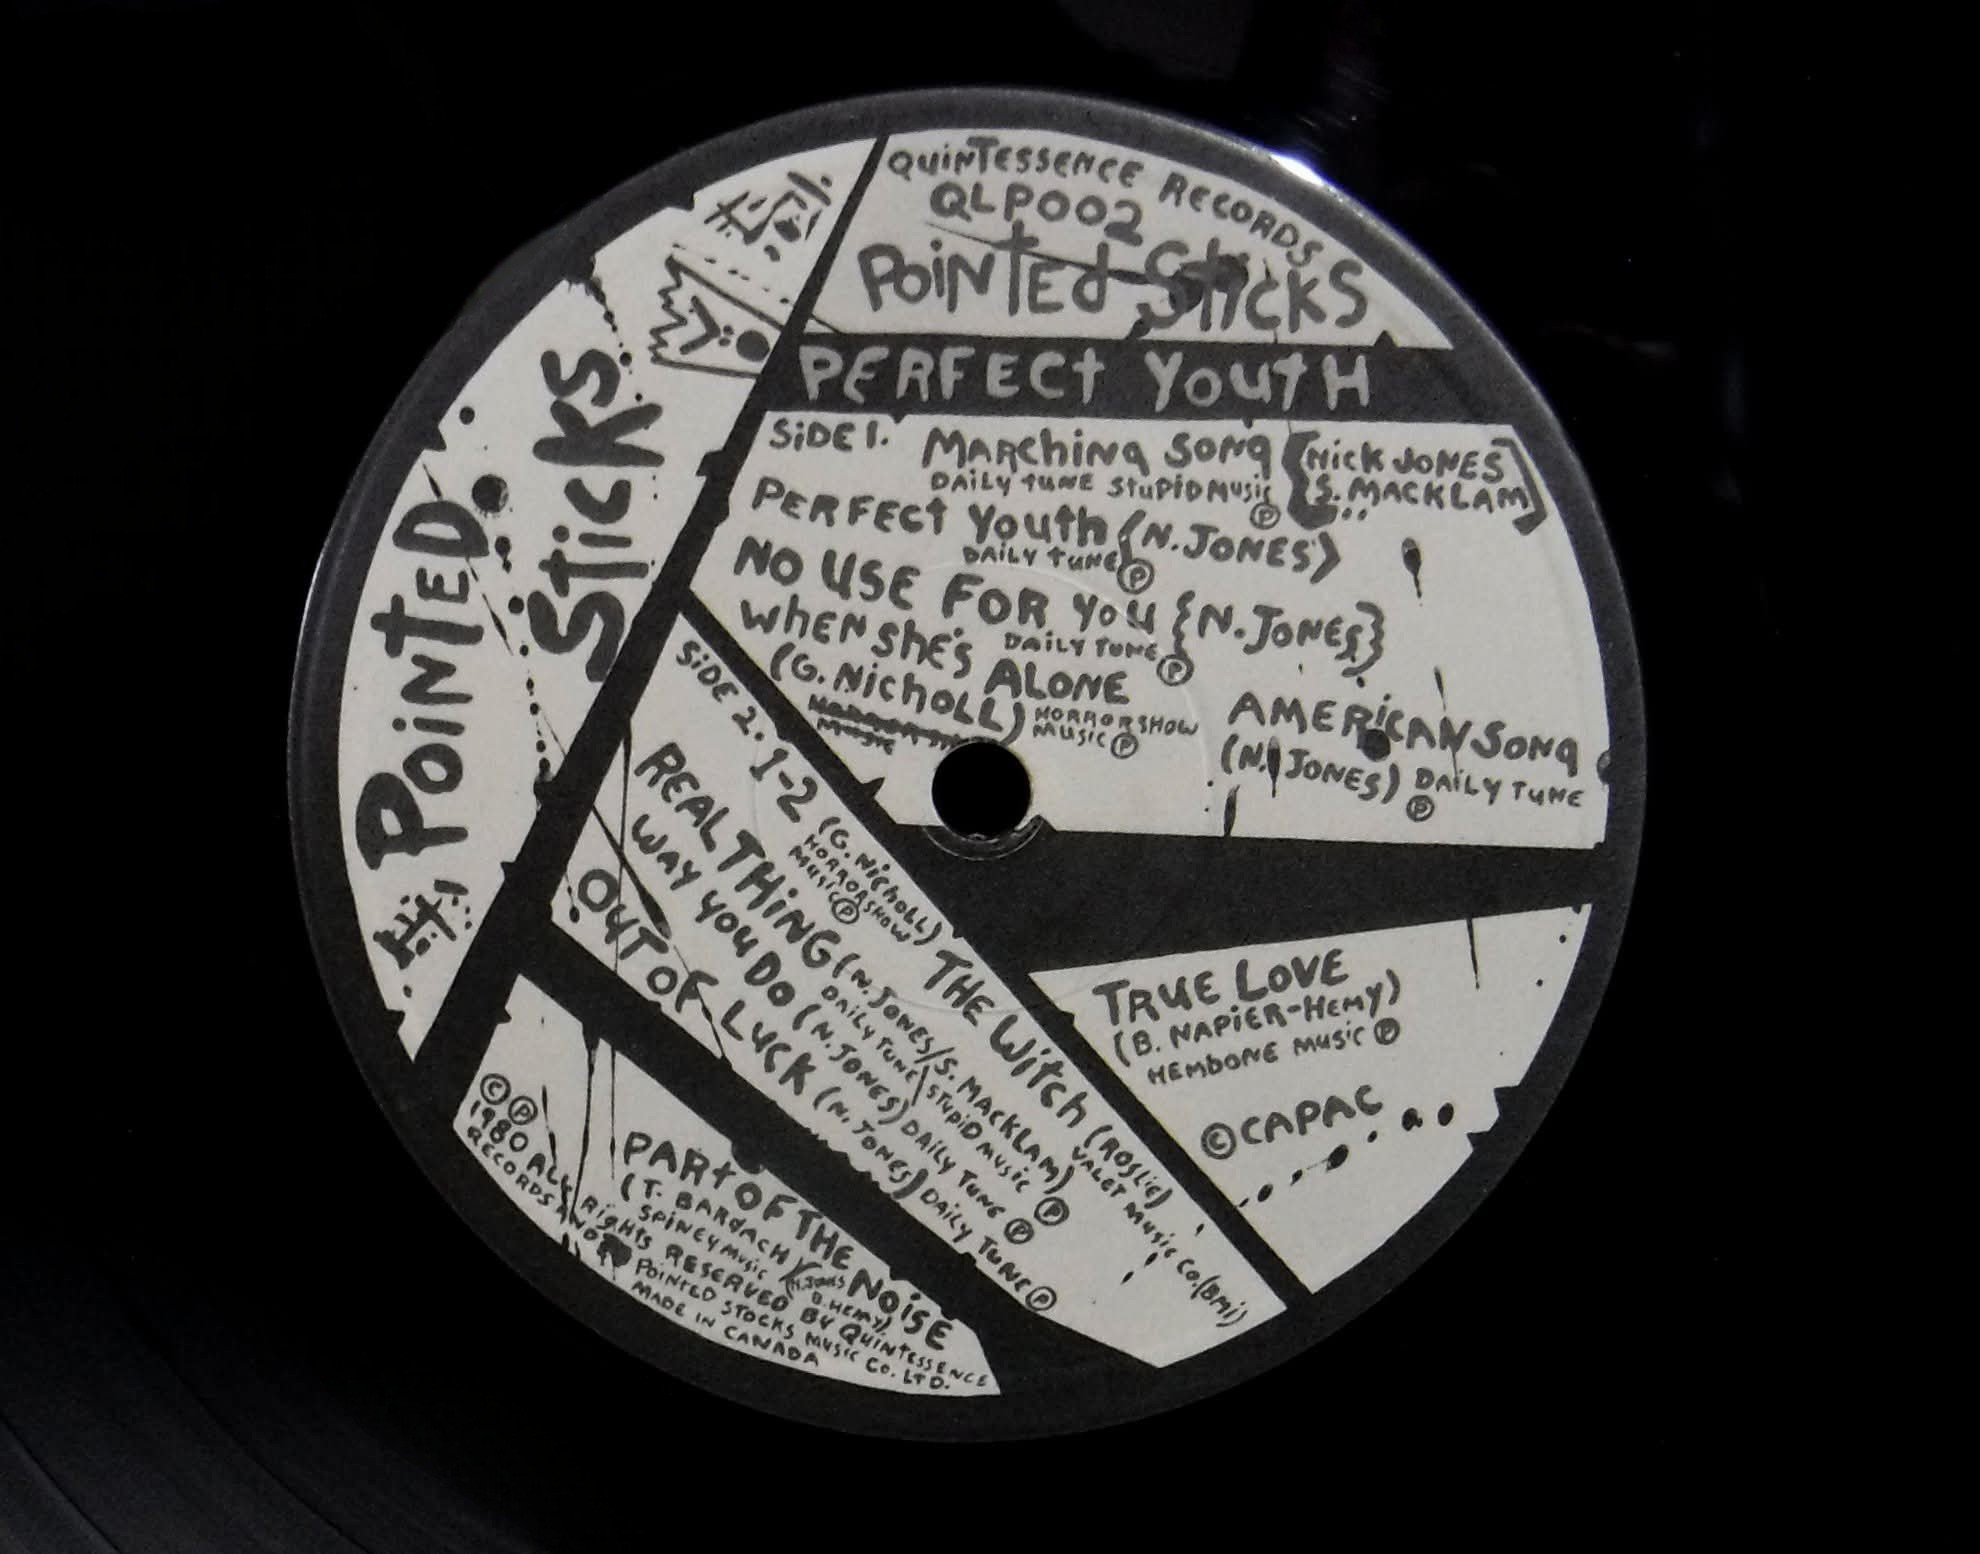 POiNTED
SticKS
QuinTessence Records
QLP002
POiNTEd SticKS
PERFECT YoutH
SiDE 1. MARching Song [Nick JONES
S. MACKLAM]
DAiLY tuNE StuPiD Music Ⓟ
PERFECt Youth (N. JONES)
DAiLY tuNE Ⓟ
NO USE FOR YOU {N. JONES}
DAiLY TUNE Ⓟ
WHEN ShE's ALONE
(G. NichoLL) HORRORSHOW
MUSiC Ⓟ
AMERiCAN SONg
(N. JONES) DAiLY TUNE
Ⓟ
SiDE 2. 1-2 (G. NichoLL)
HORRORSHOW
MUSiC Ⓟ
THE WiTCh (ROSLiE)
VALET MUSiC Co. (BMi)
REAL THiNG (N. JONES/S. MACKLAM)
DAiLY TUNE/STUPiD MUSiC Ⓟ
WAY YOU DO (N. JONES) DAiLY TUNE Ⓟ
OUT OF LUCK (N. JONES) DAiLY TUNE Ⓟ
TRUE LOVE
(B. NAPiER-HEMY)
HEMBONE MUSiC Ⓟ
© CAPAC
PARt OF THE NOiSE
(T. BARDACH/N. JONES
B. HEMY)
SPiNEY MUSiC
© Ⓟ
1980 ALL RiGHTS RESERVED BY QUiNTESSENCE
RECORDS AND POiNTED STOCKS MUSiC Co. LTD.
MADE iN CANADA